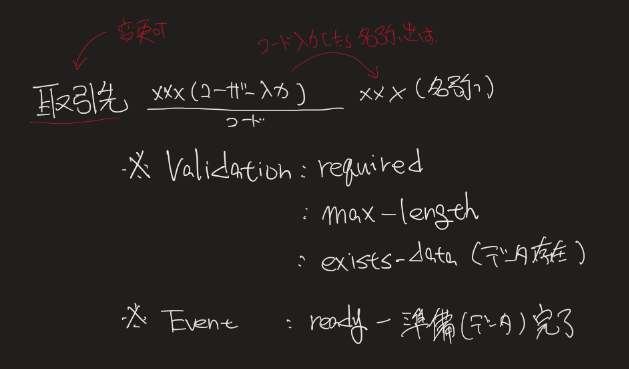 変更可
コード入力したら名称出す
取引先 xxx(ユーザー入力) xxx(名称)
コード
※ Validation : required
: max-length
: exists-data (データ存在)
※ Event : ready - 準備(データ)完了